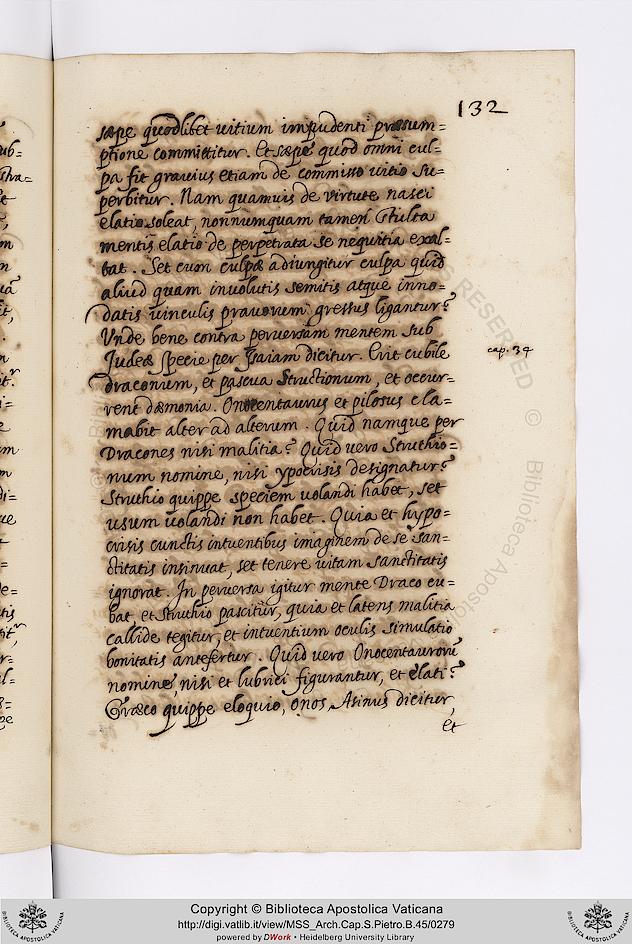 132
sæpe quodlibet uitium impudenti præsum=
ptione committitur. Et sæpe quod omni cul=
pa fit grauius etiam de commisso uitio su=
perbitur. Nam quamuis de virtute nasci
elatio soleat, nonnumquam tamen stulta
mentis elatio de perpetrata se nequitia exal=
tat. Set cum culpæ adiungitur culpa quid
aliud quam inuolutis semitis atque inno=
datis uinculis prauorum gressus ligantur?
Vnde bene contra peruersam mentem sub
Judeæ specie per Isaiam dicitur. Erit cubile
cap. 34
draconum, et pascua Structionum, et occur=
rent dæmonia. Onocentaurus et pilosus cla=
mabit alter ad alterum. Quid namque per
Dracones nisi malitia? Quid uero Struthio=
num nomine, nisi ypocrisis designatur?
Struthio quippe speciem uolandi habet, set
usum uolandi non habet. Quia et hypo=
crisis cunctis intuentibus imaginem de se san=
ctitatis insinuat, set tenere uitam sanctitatis
ignorat. In peruersa igitur mente Draco cu=
bat et Struthio pascitur, quia et latens malitia
callide tegitur, et intuentium oculis simulatio
bonitatis antefertur. Quid uero Onocentaurorū
nomine, nisi et lubrici figurantur, et elati?
Græco quippe eloquio, onos, Asinus dicitur,
et
Copyright © Biblioteca Apostolica Vaticana
http://digi.vatlib.it/view/MSS_Arch.Cap.S.Pietro.B.45/0279
powered by DWork • Heidelberg University Library